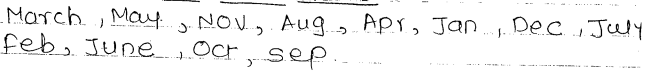 March, May, NOV, Aug, Apr, Jan, Dec, July
Feb, June, Oct, sep